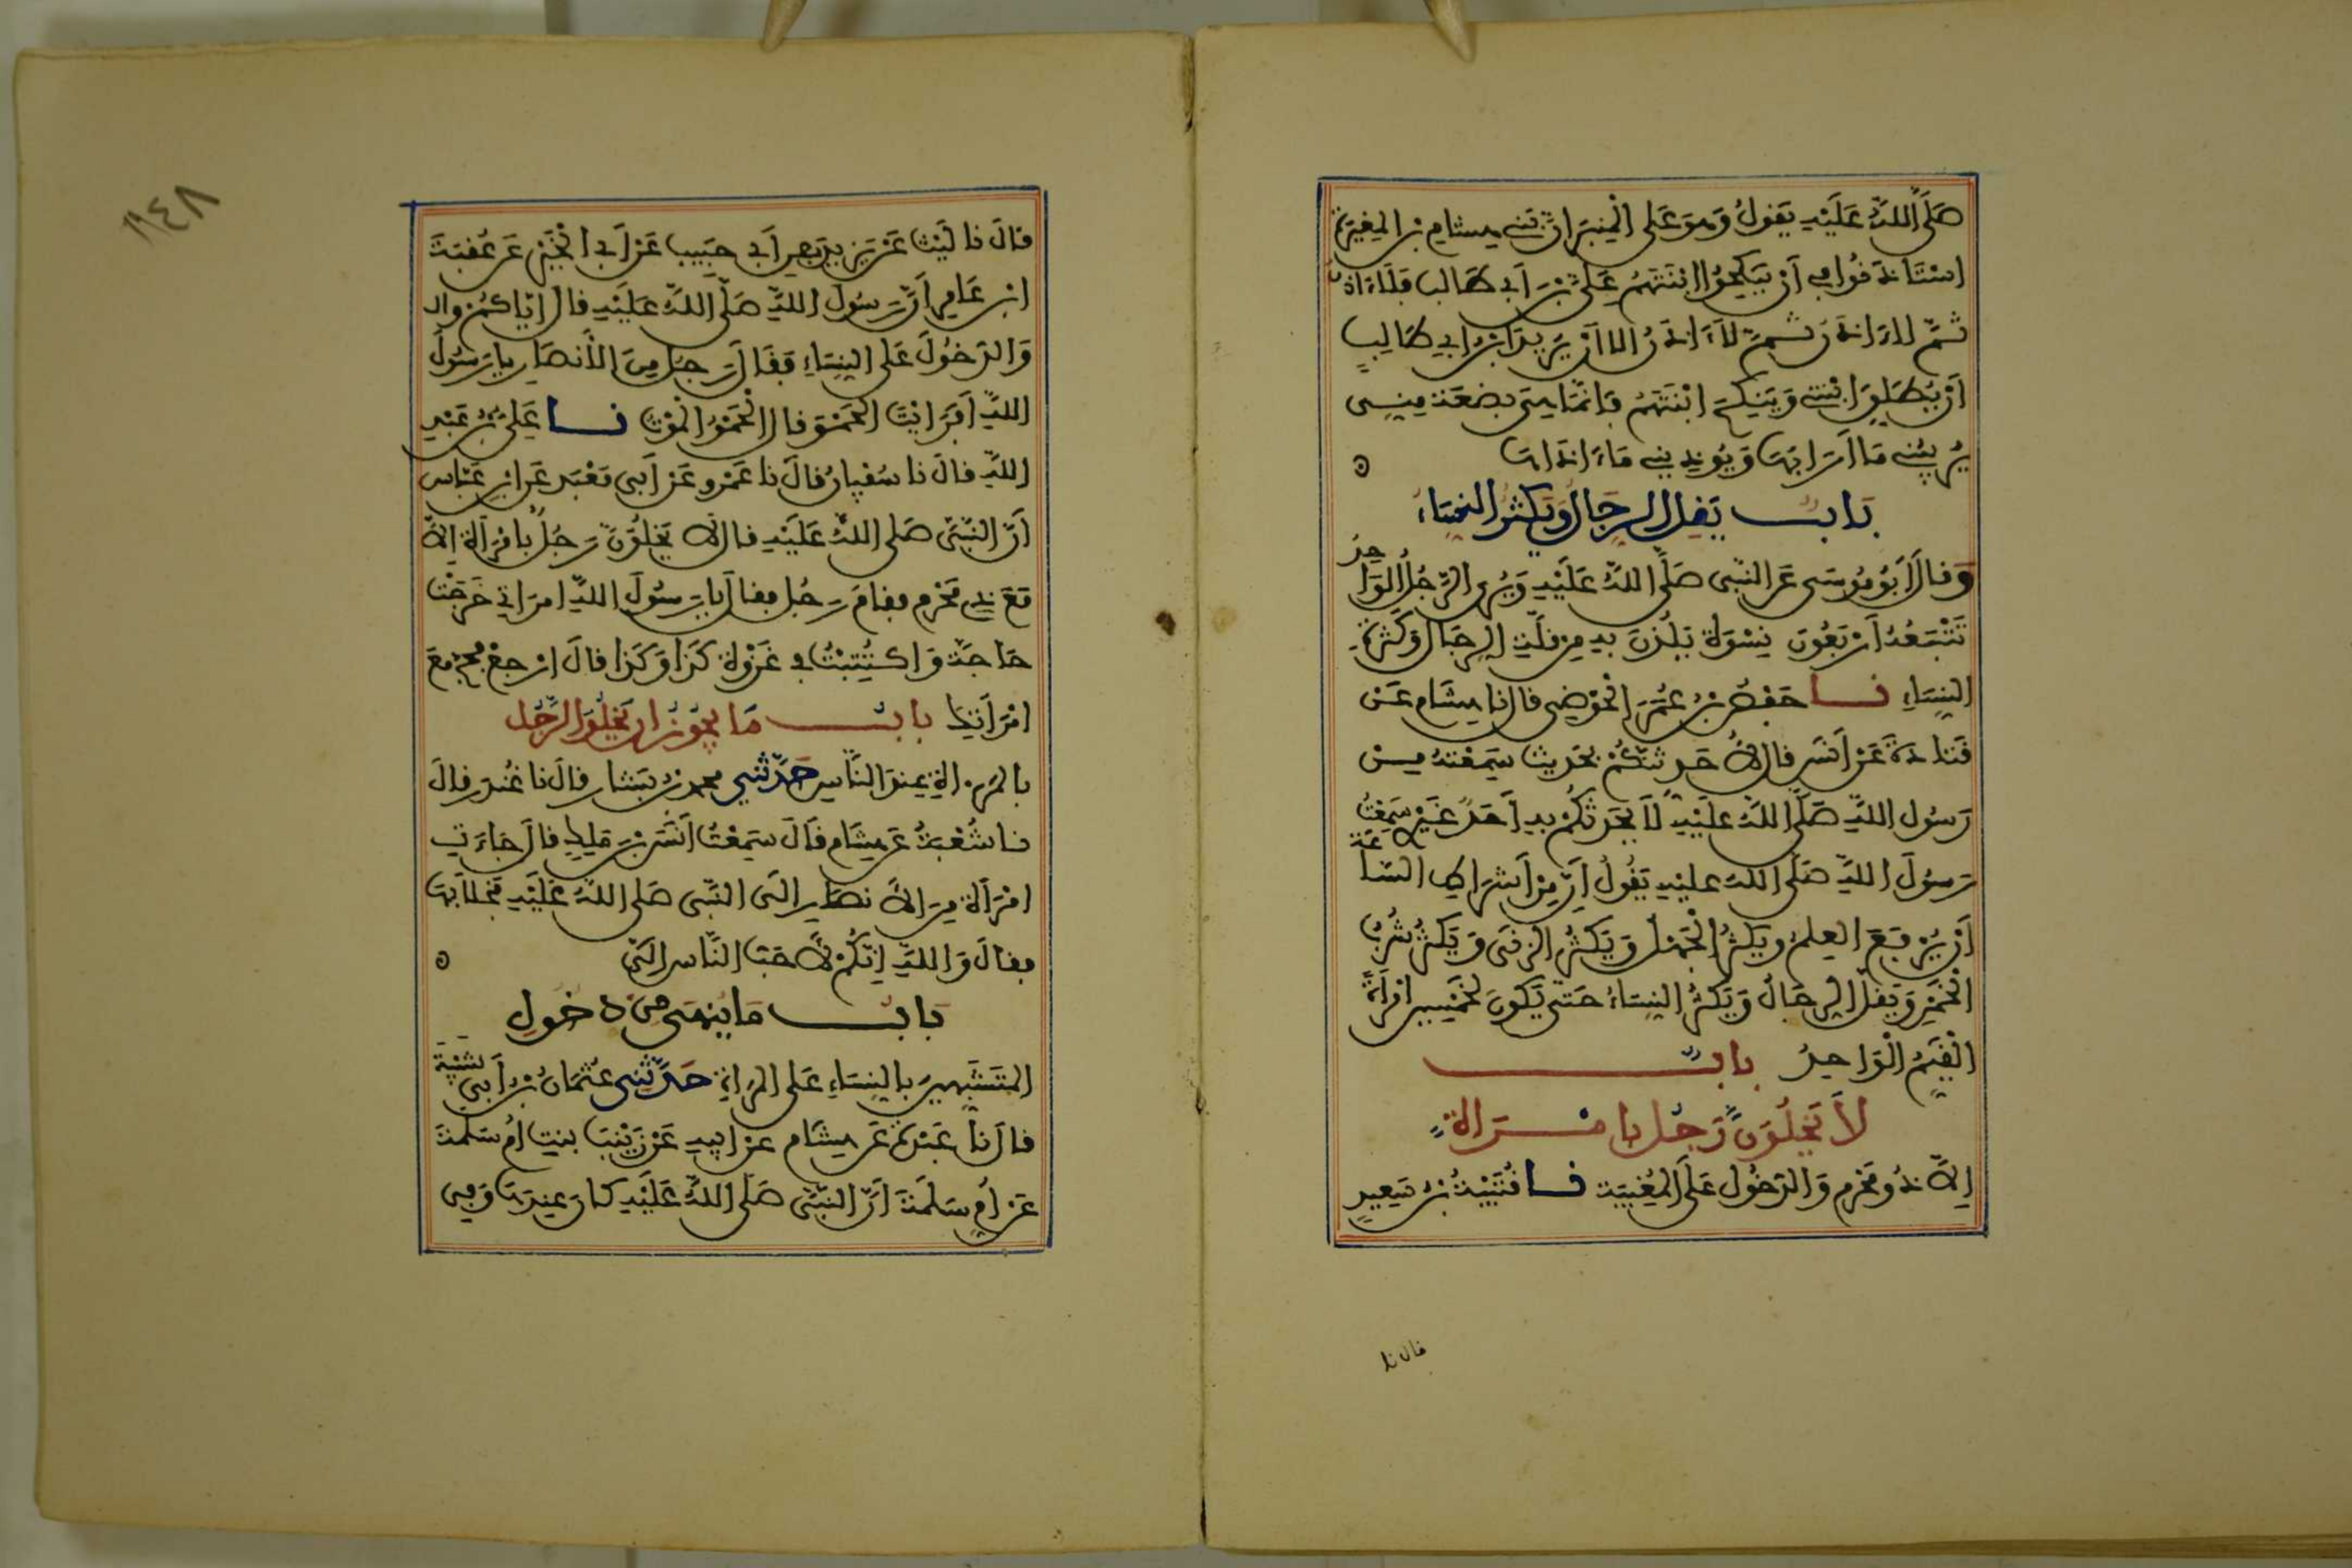 صَلَّى اللهُ عَلَيْهِ يَقُولُ وَهوَ عَلى الْمِنبَرِ انَّ بَنِي هِشامِ بْنِ المغِيرَةِ
اسْتَاذَنُوا فِي أَنْ يَنكِحُوا ابْنَتَهُمْ عَلِيَّ بْنَ أَبِي طَالب فَلَاءَ اذَنُ
ثُمَّ لاءَ اذَنُ ثُمَّ لاَءَ اذَنُ الا أنْ يُرِيدَ ابْنُ ابِي طَالِبٍ
أَنْ يُطَلِّقَ ابْنَتِي وَيَنكِحَ ابْنَتَهُمْ فَإنمَا هِيَ بضعَة مِنِّي
يُرِيبُنِي مَا أَرَابَهَا وَيُوذِينِي مَاءَ اذَاهَا
بَابٌ يَقِلُّ الرِجَالُ وَيَكثُرُ النِّسَاءُ
وَقالَ أَبُو مُوسَى عَنِ النَّبِي صَلَّى اللهُ عَلَيْهِ وَيُرى الرَّجُلُ الوَاحِدُ
تَتْبَعُهُ أَرْبَعُونَ نِسْوَة يَلُذْنَ بهِ مِن قلَّةِ الرِجَالِ وَكَثرَةِ
النِّسَاءِ نا حَفْصُ بْنُ عُمَرَ الْحَوْضِي قال نا هِشَام عَنْ
قَتادَةَ عَنْ أَنَسٍ قال لأُحَدِثَنَّكُمْ بحَدِيث سَمِعْتهُ مِنْ
رَسُول اللهِ صَلَّى اللهُ عَلَيْهِ لَا يُحَدثكُمْ بهِ أَحَدٌ غَيْرِي سَمِعْتُ
رَسُولَ اللهِ صَلَّى اللهُ عليْهِ يَقُولُ إِنَّ مِنْ أَشرَاطِ السَّاعَة
أَنْ يُرْفَعَ العِلمُ ويَكثُرَ الْجَهْلُ وَيَكْثُرَ الزنَى وَيَكْثُرَ شُرْبُ
الْخَمْرِ وَيَقِلَّ الرِجَالُ وَيَكْثُرَ النِّسَاءُ حَتى يَكُونَ لخَمْسِينَ امْرَأَةً
الْقَيِّمُ الْوَاحِدُ بابٌ
لاَ يَخْلُوَنَّ رَجُل بامْرَأة
إِلاَّ ذُو مَحْرَم وَالدخُول عَلَى المُغِيبَة نا قُتَيْبَةُ بْنُ سَعِيدٍ
قال نا
١١٤٨
قالَ نا لَيْث عَنْ يَزِيدَ بْنِ أَبِي حَبِيب عَنْ أَبِي الخَيْرِ عَن عُقْبَةَ
ابْنِ عَامِرٍ أَنَّ رَسُولَ اللهِ صَلَّى اللهُ عَلَيْهِ قالَ إيّاكُمْ وال
وَالدخُولَ عَلى النِسَاءِ فَقَالَ رَجُل مِنَ الأَنصَارِ يا رَسُولَ
اللهِ أَفَرَأَيْتَ الحَمْوَ قال الْحَمْوُ الْمَوْت نا عَلِيُّ بْنُ عَبْدِ
اللهِ قالَ نا سُفْيَانُ قالَ نا عَمْرو عَنْ أَبِي مَعْبَد عَن ابْنِ عَبَّاس
أَنَّ النَّبِيَّ صَلى اللهُ عَلَيْهِ قال لا يَخْلُوَنَّ رَجُلٌ بامْرَأة إلاَّ
مَعَ ذِي مَحْرَم فقامَ رَجُل فقال يا رَسُولَ اللهِ امرَاتِي خَرَجَتْ
حَاجَّة وَاكتُتِبْتُ فِي غَزْوَة كَذَا وَكَذَا قالَ ارْجِعْ فحُج مَعَ
امْرَأَتِكَ بابٌ مَا يجُوزُ ان يَخْلُوَ الرَّجُل
بالمَرأةِ عِندَ النَّاسِ حَدَّثَنِي محمد بْنُ بَشار قالَ نا غُندَر قالَ
نا شُعْبَةُ عَن هِشَام قَالَ سَمِعْتُ أَنَسَ بْنَ مَلِكٍ قالَ جَاءَت
امْرَأَة مِنَ الأَنصَارِ الَى النَّبِي صَلى اللهُ عَلَيْهِ فَخَلاَ بهَا
فقالَ وَاللهِ إِنَّكُمْ لأَحَبُّ النَّاس الَيَّ
بَابٌ مَا يُنهَى مِنْ دخُولِ
المتَشَبِّهِينَ بالنِسَاءِ عَلى المَرْأةِ حَدَّثَنِي عُثمَانُ بْنُ أَبِي شَيْبَةَ
قال نا عَبْدَةُ عَن هِشَام عن ابِيهِ عَنْ زَيْنَبَ بِنتِ أُم سَلَمَةَ
عَن أُمِّ سَلَمَةَ أَنَّ النَّبِيَّ صَلى اللهُ عَلَيْهِ كانَ عِندَهَا وَفِي